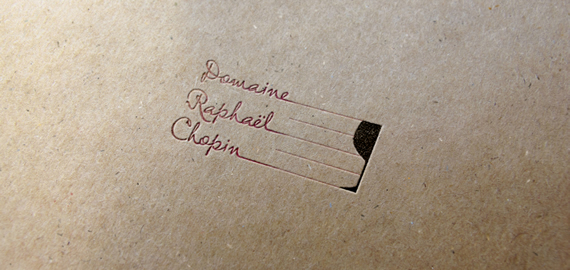 Domaine
Raphaël
Chopin